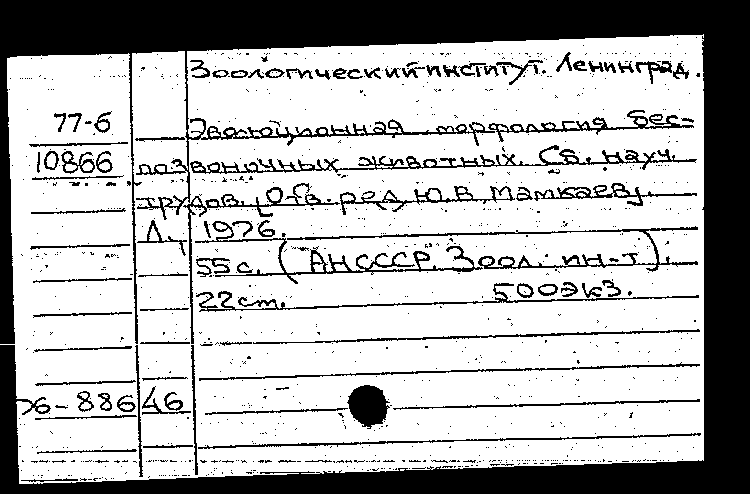 Зоологический институт. Ленинград.
77-6 Эволюционная морфология бес=
10866 позвоночных животных. Сб. науч.
трудов. [Отв. ред. Ю.В. Мамкаев].
Л., 1976.
55 с. (АНСССР. Зоол. ин-т).
22 см. 500 экз.
06-886 46